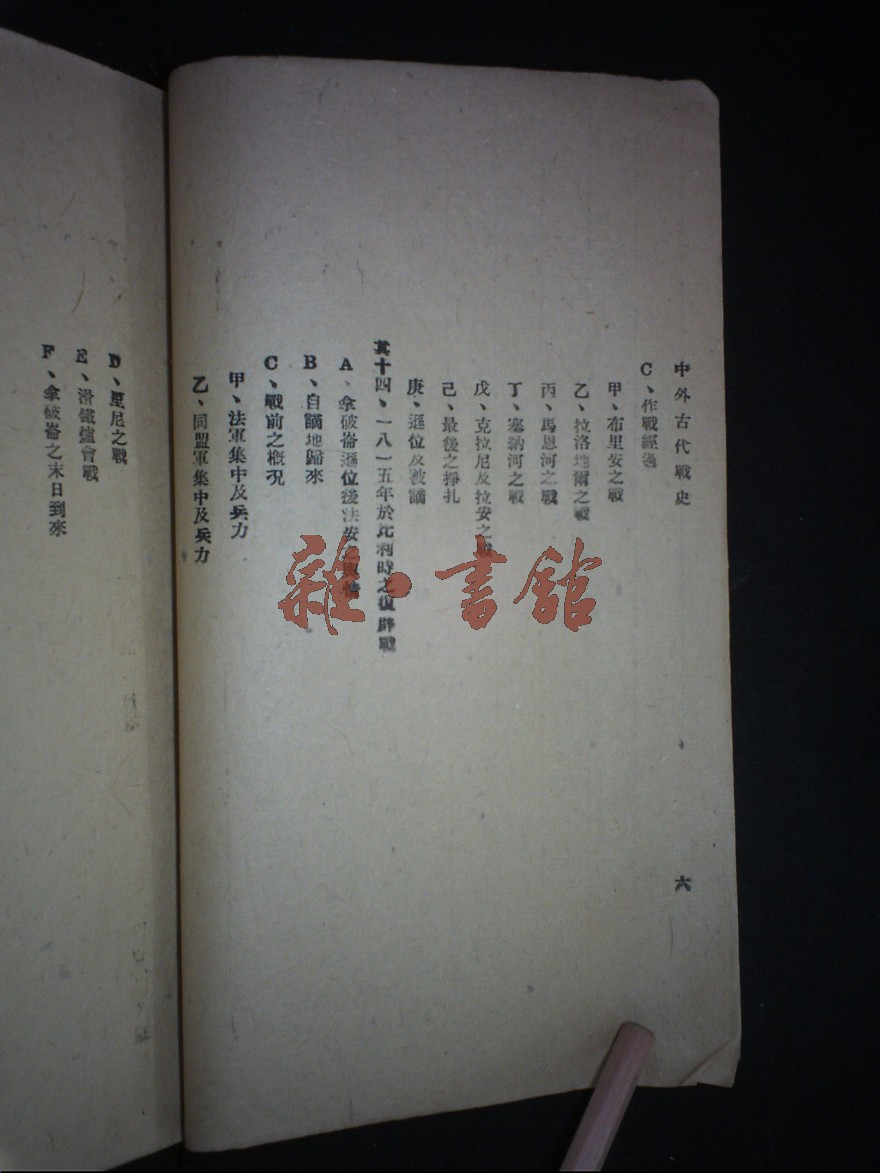 中外古代戰史
六
C、作戰經過
甲、布里安之戰
乙、拉洛地爾之戰
丙、馬恩河之戰
丁、塞納河之戰
戊、克拉尼及拉安之
己、最後之掙扎
庚、遜位及被謫
其十四、一八一五年於比利時之復辟戰
A、拿破崙遜位後法
B、自謫地歸來
C、戰前之概況
甲、法軍集中及兵力
乙、同盟軍集中及兵力
D、里尼之戰
E、滑鐵爐會戰
F、拿破崙之末日到來
雜·書館